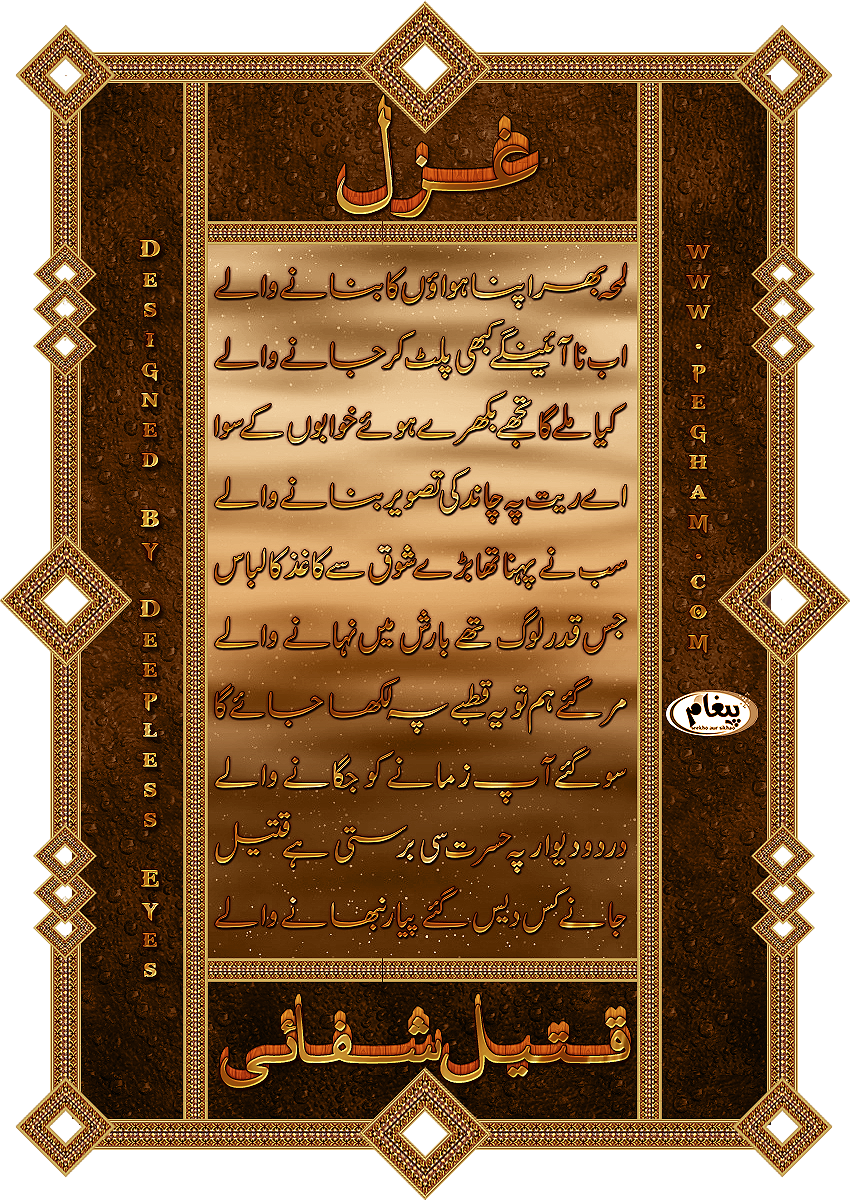 غزل
لمحہ بھر اپنا ہواؤں کا بنانے والے
اب نا آئینگے کبھی پلٹ کر جانے والے
کیا ملے گا تجھے بکھرے ہوئے خوابوں کے سوا
اے ریت پہ چاند کی تصویر بنانے والے
سب نے پہنا تھا بڑے شوق سے کاغذ کا لباس
جس قدر لوگ تھے بارش میں نہانے والے
مر گئے ہم تو یہ قطبے پہ لکھا جائے گا
سو گئے آپ زمانے کو جگانے والے
در و دیوار پہ حسرت سی برستی ہے قتیل
جانے کس دیس گئے پیار نبھانے والے
قتیل شفائی
DESIGNED BY DEEPLESS EYES
WWW.PEGHAM.COM
پیغام